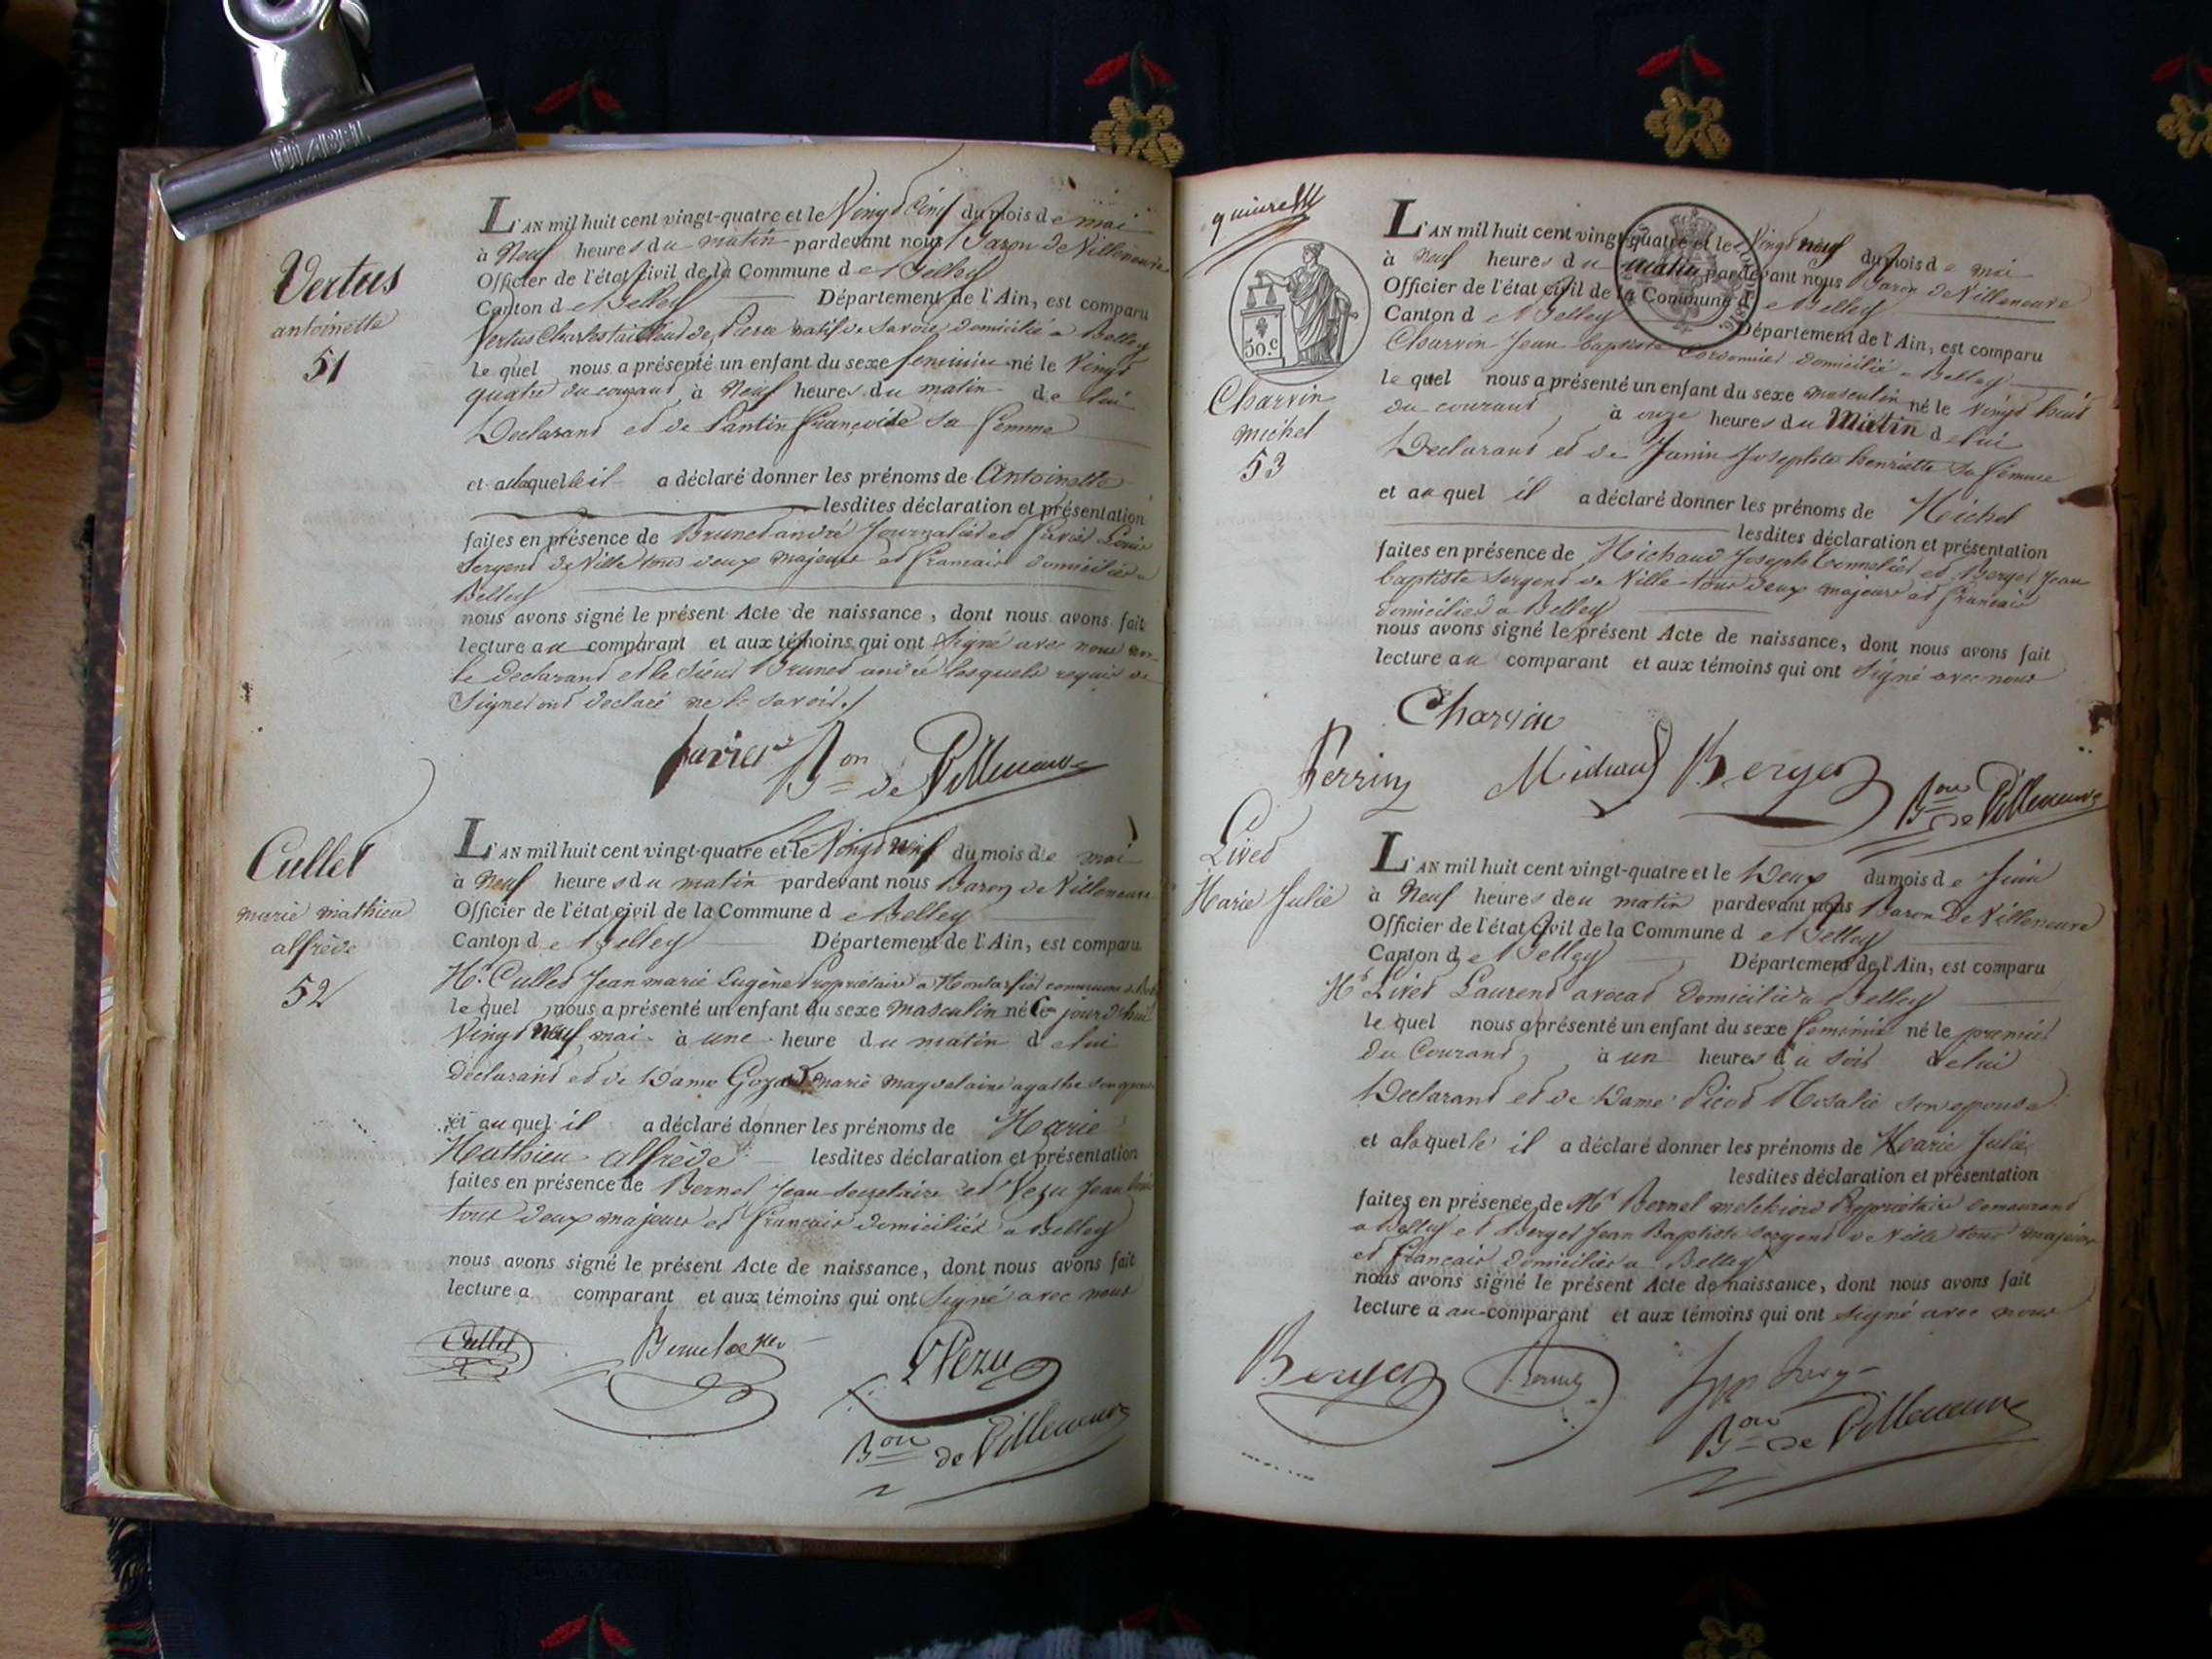 Vertus
antoinette
51
L'AN mil huit cent vingt-quatre et le Vingt Cinq du mois de mai
à Neuf heures du matin pardevant nous Baron de Villeneuve
Officier de l'état civil de la Commune de Belley
Canton de Belley Département de l'Ain, est comparu
Vertus Charles tailleur de Pierre natif de Savoie, domicilié a Belley
le quel nous a présenté un enfant du sexe feminin né le Vingt
quatre du courant à Neuf heures du matin de lui
Declarant et de Pantin Françoise sa femme
et à laquelle il a déclaré donner les prénoms de Antoinette
lesdites déclaration et présentation
faites en présence de Brunet andré Journalier et Louis
Sergent de Ville tous deux majeurs et français domiciliés a
Belley
nous avons signé le présent Acte de naissance, dont nous avons fait
lecture au comparant et aux témoins qui ont Signé avec nous non
le declarant et le Sieur Brunet andré lesquels requis de
Signer ont declaré ne le savoir
Bon de Villeneuve
Cullet
marie mathieu
alfrède
52
L'AN mil huit cent vingt-quatre et le Vingt neuf du mois de mai
à Neuf heures du matin pardevant nous Baron de Villeneuve
Officier de l'état civil de la Commune de Belley
Canton de Belley Département de l'Ain, est comparu
Mr. Cullet Jean marie Eugène Propriétaire a commune de
le quel nous a présenté un enfant du sexe masculin né Ce jourd'hui
Vingt neuf mai à une heure du matin de lui
Declarant et de Dame marie magdelaine agathe son
et au quel il a déclaré donner les prénoms de Marie
Mathieu alfrède lesdites déclaration et présentation
faites en présence de Bernel Jean Secretaire et Vezu Jean
tous deux majeurs et français domiciliés a Belley
nous avons signé le présent Acte de naissance, dont nous avons fait
lecture a comparant et aux témoins qui ont Signé avec nous
Cullet
Vezu
Bon de Villeneuve
50.c
Charvin
michel
53
L'AN mil huit cent vingt-quatre et le Vingt neuf du mois de mai
à Neuf heures du matin pardevant nous Baron de Villeneuve
Officier de l'état civil de la Commune de Belley
Canton de Belley Département de l'Ain, est comparu
Charvin Jean baptiste Cordonnier domicilié a Belley
le quel nous a présenté un enfant du sexe masculin né le vingt huit
du courant à onze heures du Matin de lui
Declarant et de Janin Josephte henriette sa femme
et au quel il a déclaré donner les prénoms de Michel
lesdites déclaration et présentation
faites en présence de Michaud Joseph tonnelier et Berger Jean
baptiste Sergent de Ville tous deux majeurs et français
domiciliés a Belley
nous avons signé le présent Acte de naissance, dont nous avons fait
lecture au comparant et aux témoins qui ont Signé avec nous
Charvin
Perrin Michaud Berger
Bon de Villeneuve
Livet
Marie Julie
L'AN mil huit cent vingt-quatre et le Deux du mois de Juin
à Neuf heures du matin pardevant nous Baron De Villeneuve
Officier de l'état civil de la Commune de Belley
Canton de Belley Département de l'Ain, est comparu
Mr Livet Laurent avocat domicilié a Belley
le quel nous a présenté un enfant du sexe feminin né le premier
du Courant à un heures du soir de lui
Declarant et de Dame Picot Rosalie son epouse
et a laquelle il a déclaré donner les prénoms de Marie Julie
lesdites déclaration et présentation
faites en présence de Mr Bernel melchior Propriétaire demeurant
a Belley et Berger Jean Baptiste sergent de Ville tous majeurs
et français domiciliés a Belley
nous avons signé le présent Acte de naissance, dont nous avons fait
lecture a au comparant et aux témoins qui ont signé avec nous
Berger Bernel
Bon de Villeneuve